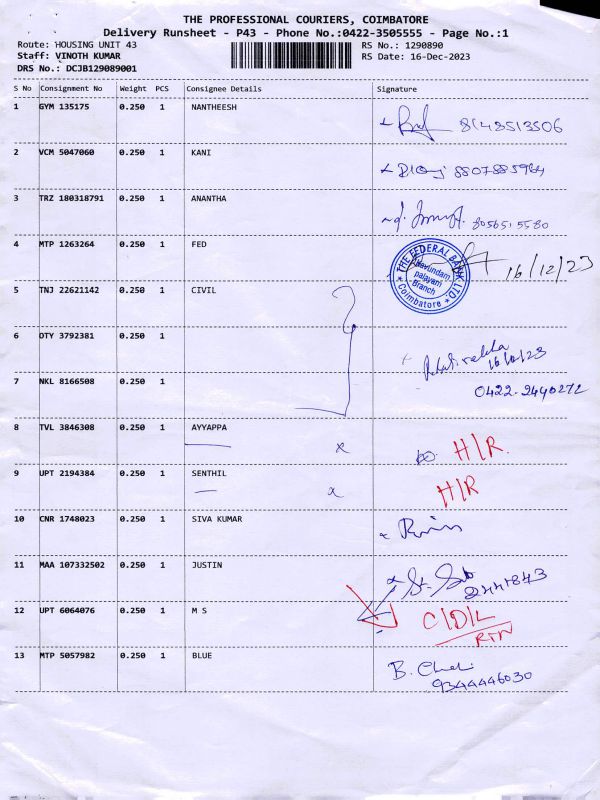 THE PROFESSIONAL COURIERS, COIMBATORE
Delivery Runsheet - P43 - Phone No.:0422-3505555 - Page No.:1
Route: HOUSING UNIT 43
Staff: VINOTH KUMAR
DRS No.: DCJB129089001
RS No.: 1290890
RS Date: 16-Dec-2023
S No Consignment No Weight PCS Consignee Details Signature
1 GYM 135175 0.250 1 NANTHEESH
8148513506
2 VCM 5047060 0.250 1 KANI
8807885984
3 TRZ 180318791 0.250 1 ANANTHA
8056515580
4 MTP 1263264 0.250 1 FED
THE FEDERAL BANK LTD
Kavundam
palayam
Branch
Coimbatore
16/12/23
5 TNJ 22621142 0.250 1 CIVIL
6 DTY 3792381 0.250 1
7 NKL 8166508 0.250 1
0422-2440272
8 TVL 3846308 0.250 1 AYYAPPA x H/R
9 UPT 2194384 0.250 1 SENTHIL x H/R
10 CNR 1748023 0.250 1 SIVA KUMAR
11 MAA 107332502 0.250 1 JUSTIN
2441843
12 UPT 6064076 0.250 1 M S C/D/L
RTN
13 MTP 5057982 0.250 1 BLUE
9344446030